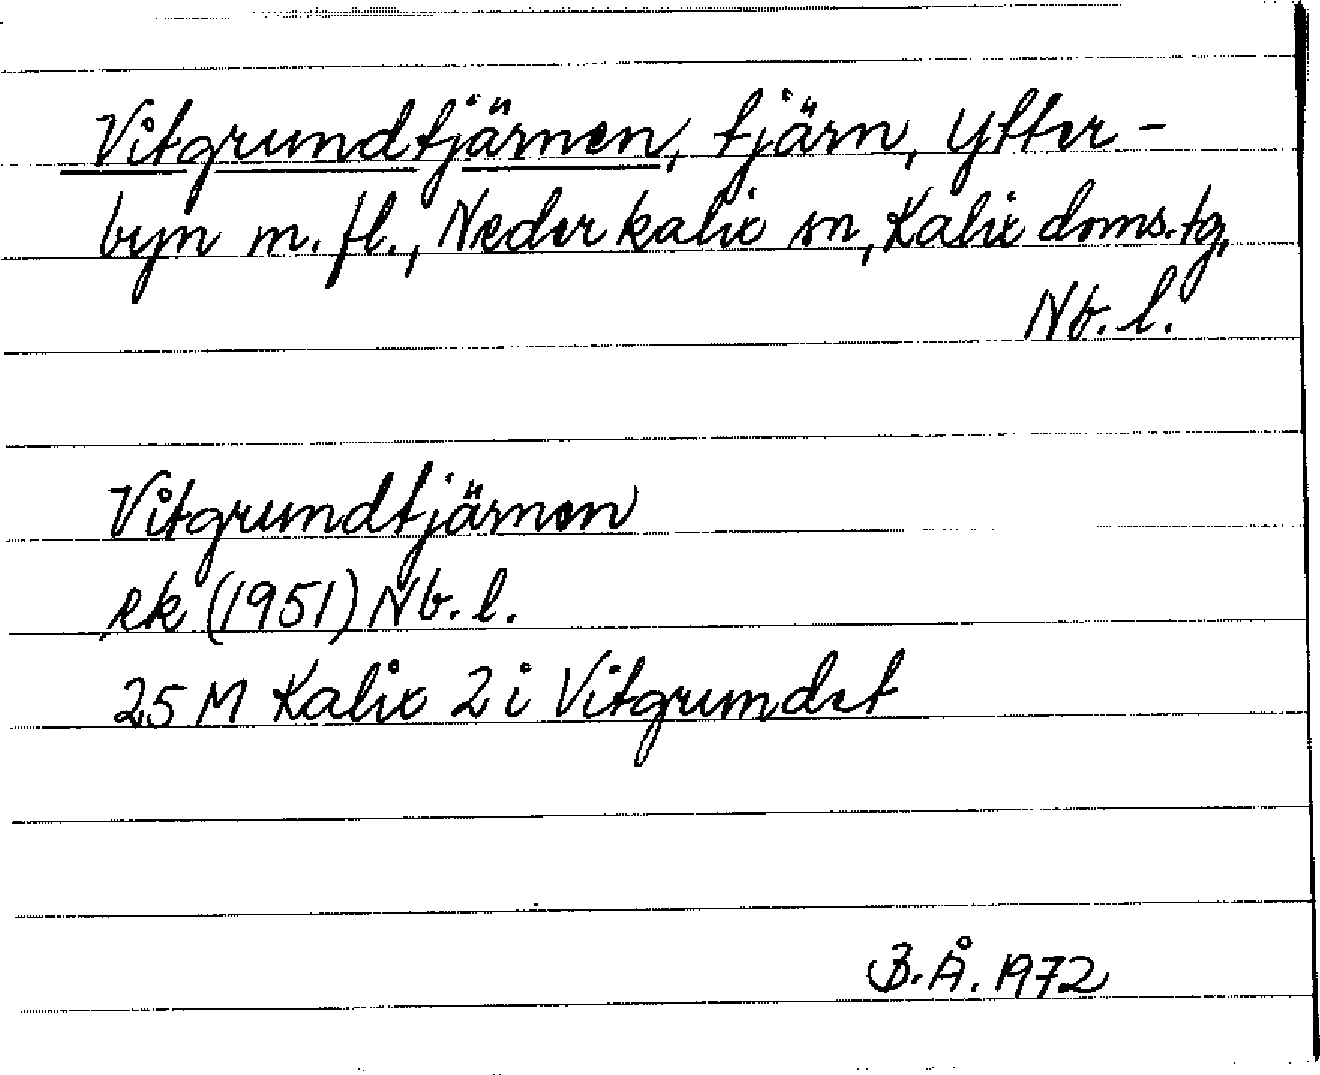 Vitgrundtjärnen, tjärn, Ytter-
byn m. fl., Nederkalix sn, Kalix doms.tg,
Nb. l.
Vitgrundtjärnen
ek (1951) Nb. l.
25 M Kalix 2 i Vitgrundet
B. Å. 1972